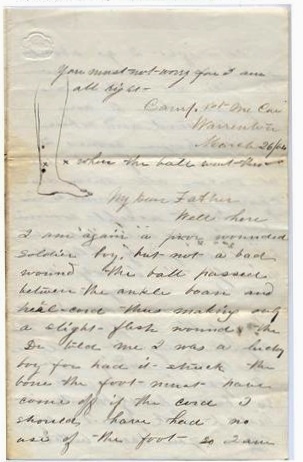 You must not worry for I am
all right -
Camp, nr
Warrenton
March 26/64
x where the ball went thro
My Dear Father
Well here
I am again a poor wounded
soldier boy, but not a bad
wound the ball passed
between the ankle boan and
heal cord thus making only
a slight flesh wound, the
Dr told me I was a lucky
boy for had it struck the
bone the foot must have
come off if the cord I
should have had no
use of the foot so I am